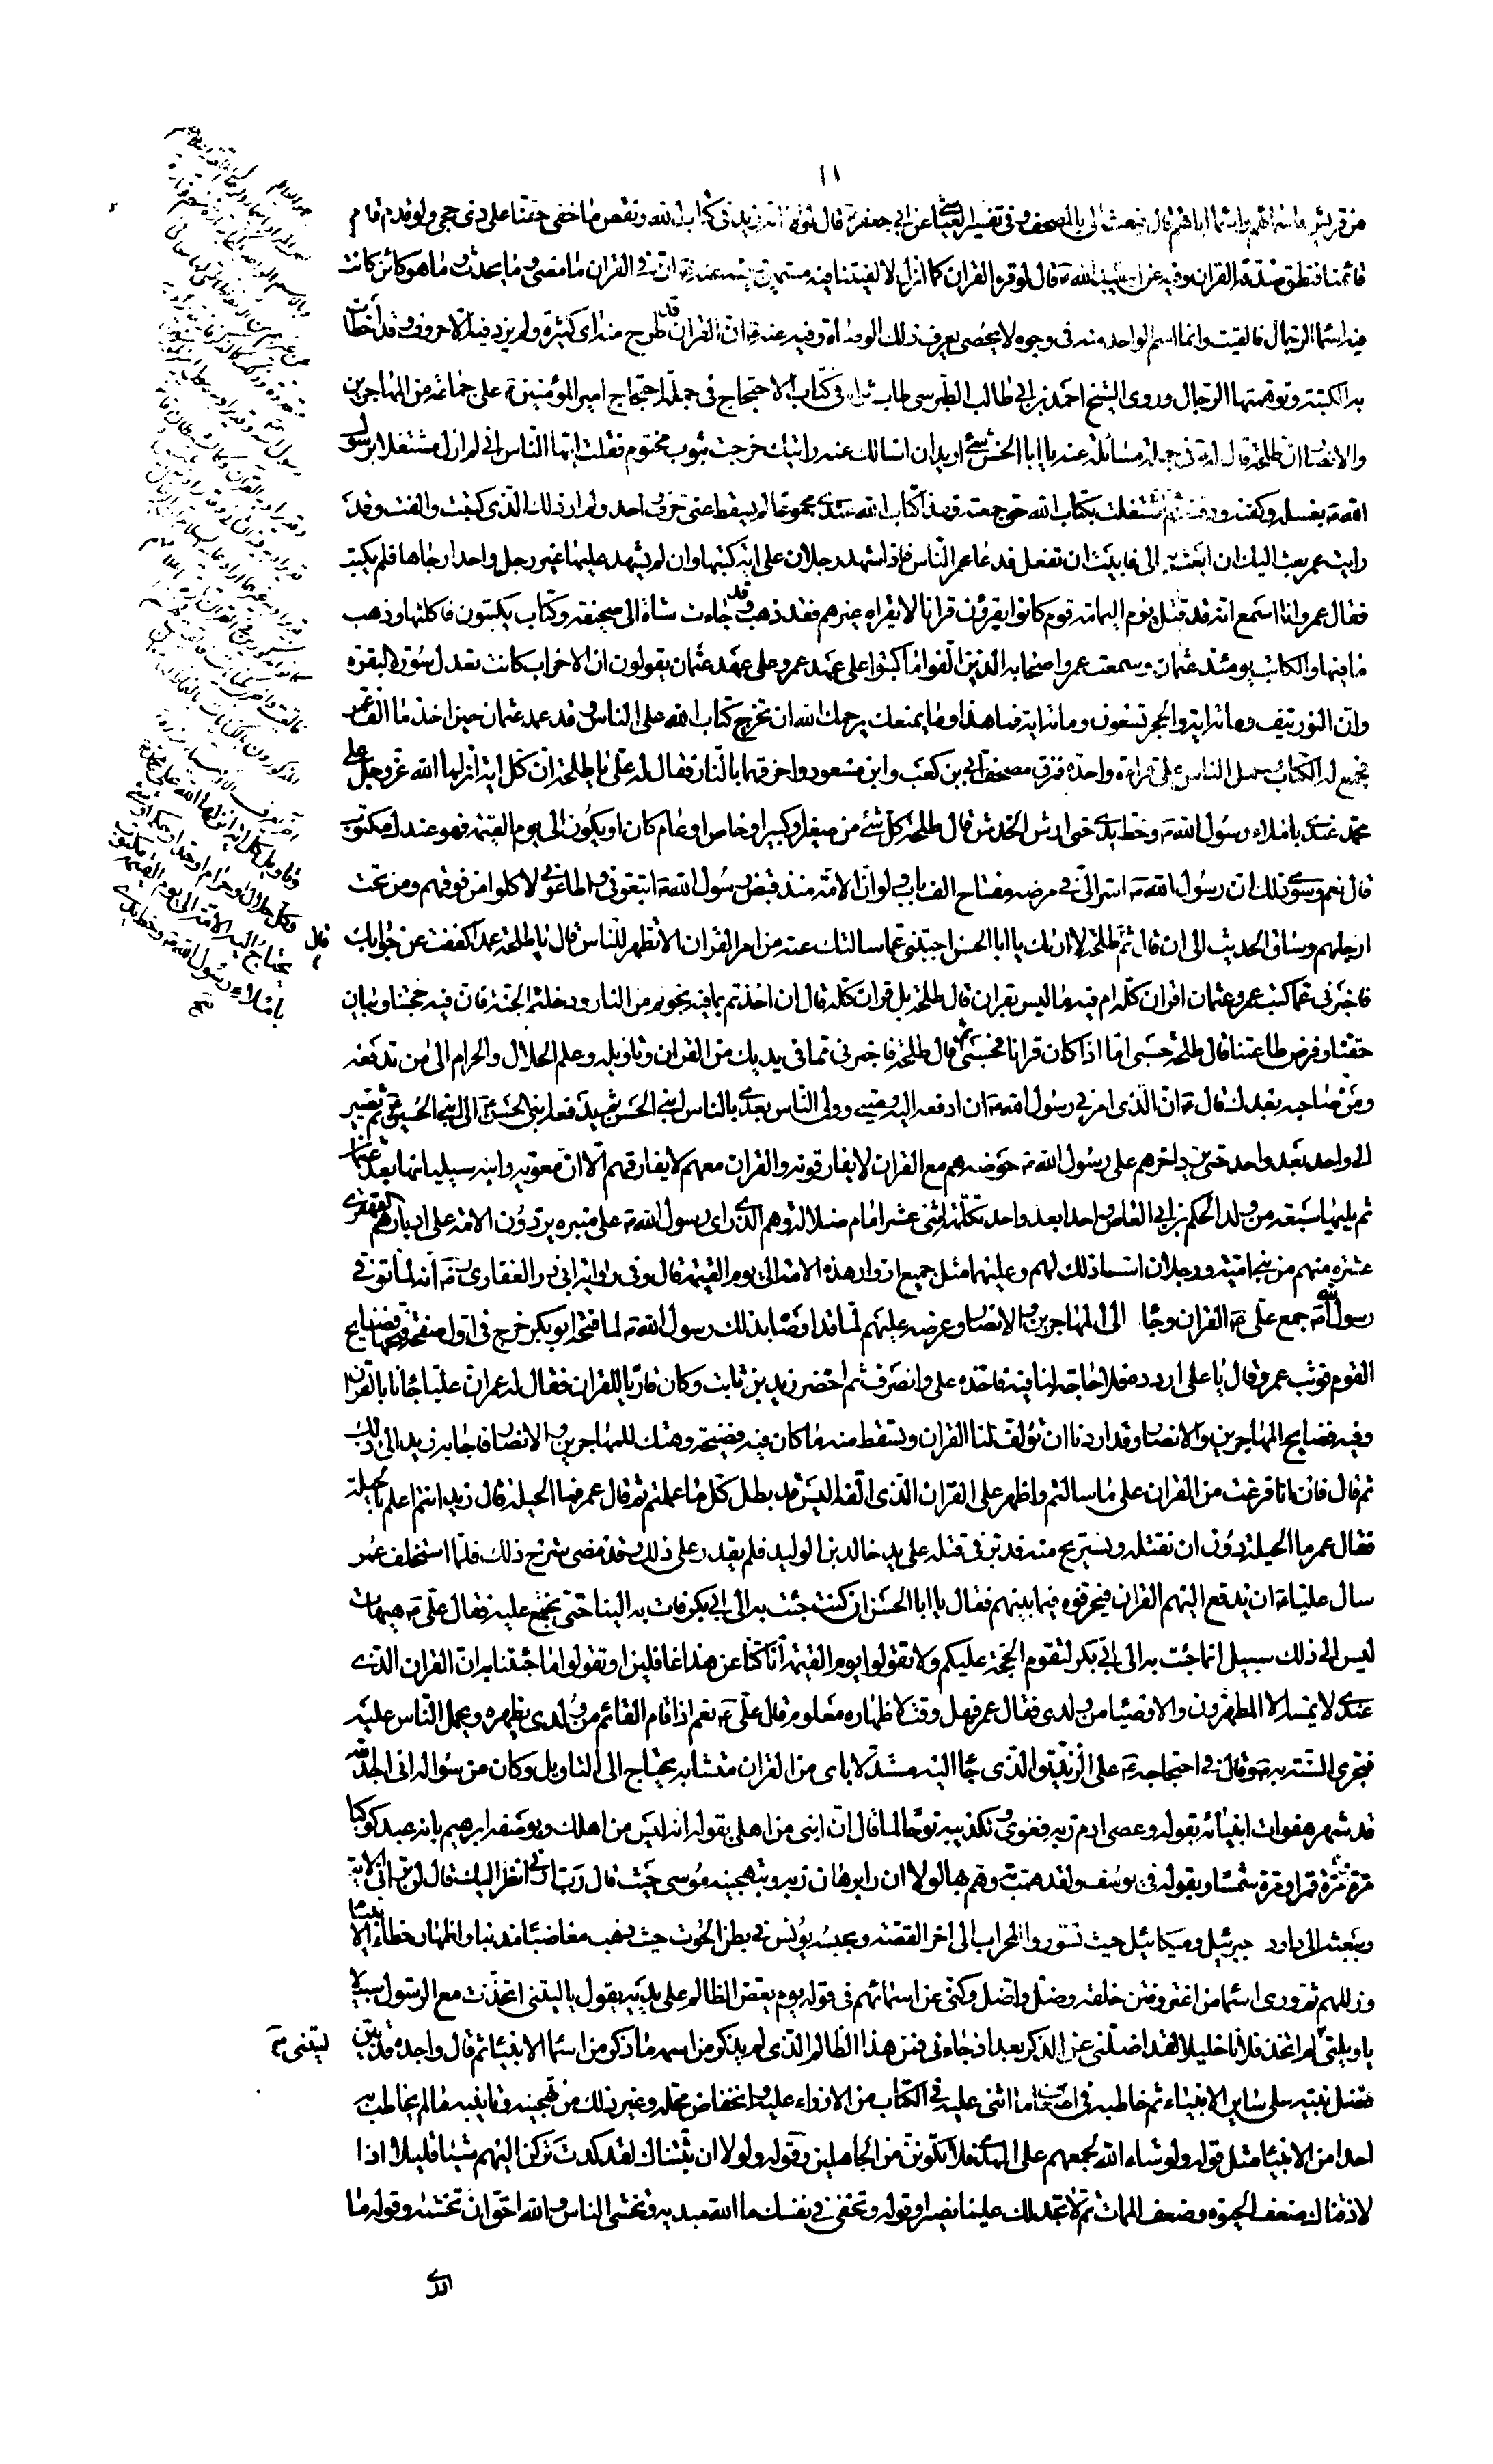 ١١
من قريش باسمائهم واسماء ابائهم قال فبعث الى بالمصحف وفى تفسير العياشى عن ابى جعفر ع قال لولا انه زيد فى كتاب الله ونقص ما خفى حقنا على ذى حجى ولو قد قام
قائمنا فنطق صدقه القران وفيه عن ابى عبد الله ع قال لو قرء القران كما انزل لالفيتنا فيه مسمين وفيه عنه ع ان فى القران ما مضى وما يحدث وما هو كائن كانت
فيه اسماء الرجال فالقيت وانما الاسم الواحد منه فى وجوه لا يحصى يعرف ذلك الوصاة وفيه عنه ع ان القران قد طرح منه اى كثيرة ولم يزد فيه الا حروف وقد اخطات
به الكتبة وتوهمتها الرجال وروى الشيخ احمد بن ابى طالب الطبرسى طاب ثراه فى كتاب الاحتجاج فى جملة احتجاج امير المؤمنين ع على جماعة من المهاجرين
والانصار ان طلحة قال له فى جملة مسائله عنه يا ابا الحسن شئ اريد ان اسالك عنه رايتك خرجت بثوب مختوم فقلت ايها الناس انى لم ازل مشتغلا برسول
الله ص بغسله وكفنه ودفنه ثم اشتغلت بكتاب الله حتى جمعته فهذا كتاب الله عندى مجموعا لم يسقط عنى حرف واحد ولم ار ذلك الذى كتبت والفت وقد
رايت عمر بعث اليك ان ابعث به الى فابيت ان تفعل فدعا عمر الناس فاذا شهد رجلان على اية كتبها وان لم يشهد عليها غير رجل واحد ارجاها فلم يكتب
فقال عمر وانا اسمع انه قد قتل يوم اليمامة قوم كانوا يقرؤن قرانا لا يقراه غيرهم فقد ذهب وقد جاءت شاة الى صحيفة وكتاب يكتبون فاكلتها وذهب
ما فيها والكاتب يومئذ عثمان وسمعت عمر واصحابه الذين الفوا ما كتبوا على عهد عمر وعلى عهد عثمان يقولون ان الاحزاب كانت تعدل سورة البقرة
وان النور نيف ومائة اية والحجر تسعون ومائة اية فما هذا وما يمنعك يرحمك الله ان تخرج كتاب الله على الناس وقد عمد عثمان حين اخذ ما الف عمر
فجمع له الكتاب وحمل الناس على قراءة واحدة فمزق مصحف ابى بن كعب وابن مسعود واحرقهما بالنار فقال له على ع يا طلحة ان كل اية انزلها الله عز وجل على
محمد عندى باملاء رسول الله ص وخط يدى حتى ارش الخدش قال طلحة كل شئ من صغير او كبير او خاص او عام كان او يكون الى يوم القيمة فهو عندك مكتوب
قال نعم وسوى ذلك ان رسول الله ص اسر الى فى مرضه مفتاح الف باب ولو ان الامة منذ قبض رسول الله ص اتبعونى واطاعونى لاكلوا من فوقهم ومن تحت
ارجلهم وساق الحديث الى ان قال ثم طلحة لا اراك يا ابا الحسن اجبتنى عما سالتك عنه من امر القران الا تظهر للناس قال يا طلحة عمدا كففت عن جوابك
فاخبرنى عما كتب عمر وعثمان اقران كله ام فيه ما ليس بقران قال طلحة بل قران كله قال ان اخذتم بما فيه نجوتم من النار ودخلتم الجنة فان فيه حجتنا وبيان
حقنا وفرض طاعتنا قال طلحة حسبى اما اذا كان قرانا فحسبى ثم قال طلحة فاخبرنى عما فى يديك من القران وتاويله وعلم الحلال والحرام الى من تدفعه
ومن صاحبه بعدك قال ع ان الذى امرنى رسول الله ص ان ادفعه اليه وصيى وولى الناس بعدى بالناس ابنى الحسن ثم يدفعه ابنى الحسن الى ابنى الحسين ثم يصير
الى واحد بعد واحد حتى يرد اخرهم على رسول الله ص حوضه هم مع القران لا يفارقونه والقران معهم لا يفارقهم الا ان معوية وابنه سيليانها بعد عثمان
ثم يليها سبعة من ولد الحكم بن ابى العاص واحدا بعد واحد تكملة اثنى عشر امام ضلالة وهم الذى راى رسول الله ص على منبره يردون الامة على ادبارهم القهقرى
عشرة منهم من بنى امية ورجلان اسسا ذلك لهم وعليهما مثل جميع اوزار هذه الامة الى يوم القيمة قال وفى رواية ابى ذر الغفارى رض انه لما توفى
رسول الله ص جمع على ع القران وجاء الى المهاجرين والانصار وعرضه عليهم لما قد اوصاه بذلك رسول الله ص فلما فتحه ابو بكر خرج فى اول صفحة فتحها فضايح
القوم فوثب عمر وقال يا على اردده فلا حاجة لنا فيه فاخذه على وانصرف ثم احضر زيد بن ثابت وكان قاريا للقران فقال له عمر ان عليا جائنا بالقران
وفيه فضايح المهاجرين والانصار وقد اردنا ان تؤلف لنا القران وتسقط منه ما كان فيه فضيحة وهتك للمهاجرين والانصار فاجابه زيد الى ذلك
ثم قال فان انا فرغت من القران على ما سالتم واظهر على القران الذى الفه اليس قد بطل كل ما عملتم ثم قال عمر فما الحيلة قال زيد انتم اعلم بالحيلة
فقال عمر ما الحيلة دون ان نقتله ونستريح منه فدبر فى قتله على يد خالد بن الوليد فلم يقدر على ذلك وقد مضى شرح ذلك فلما استخلف عمر
سال عليا ع ان يدفع اليهم القران فيحرفوه فيما بينهم فقال يا ابا الحسن ان كنت جئت به الى ابى بكر فات به الينا حتى نجتمع عليه فقال على ع هيهات
ليس الى ذلك سبيل انما جئت به الى ابى بكر لتقوم الحجة عليكم ولا تقولوا يوم القيمة انا كنا عن هذا غافلين او تقولوا ما جئتنا به ان القران الذى
عندى لا يمسه الا المطهرون والاوصياء من ولدى فقال عمر فهل وقت لاظهاره معلوم قال على ع نعم اذا قام القائم من ولدى يظهره ويحمل الناس عليه
فتجرى السنة به ع وقال فى احتجاجه ع على الزنديق الذى جاء اليه مستدلا باى من القران متشابه يحتاج الى التاويل وكان من سؤاله انى اجد الله
قد شهر هفوات انبيائه بقوله وعصى ادم ربه فغوى وتكذيبه نوحا لما قال ان ابنى من اهلى بقوله انه ليس من اهلك وبوصفه ابرهيم بانه عبد كوكبا
مرة ومرة قمرا ومرة شمسا وبقوله فى يوسف ولقد همت به وهم بها لولا ان راى برهان ربه وبتهجينه موسى حيث قال رب ارنى انظر اليك قال لن ترانى الاية
وببعثه الى داود جبرئيل وميكائيل حيث تسوروا المحراب الى اخر القصة وبحبسه يونس فى بطن الحوت حيث ذهب مغاضبا مذنبا واظهار خطاء الانبياء
وزللهم ثم ورى اسماء من اغتر وفتن خلقه وضل واضل وكنى عن اسمائهم فى قوله يوم يعض الظالم على يديه يقول يا ليتنى اتخذت مع الرسول سبيلا
يا ويلتى لم اتخذ فلانا خليلا لقد اضلنى عن الذكر بعد اذ جاءنى فمن هذا الظالم الذى لم يذكر من اسمه ما ذكر من اسماء الانبياء ثم قال واجده قد بين
ليتنى صح
فضل نبيه على ساير الانبياء ثم خاطبه فى اضعاف ما اثنى عليه فى الكتاب من الازراء عليه وانخفاض محله وغير ذلك من تهجينه وتانيبه ما لم يخاطب به
احدا من الانبياء مثل قوله ولو شاء الله لجمعهم على الهدى فلا تكونن من الجاهلين وقوله ولولا ان ثبتناك لقد كدت تركن اليهم شيئا قليلا اذا
لاذقناك ضعف الحيوة وضعف الممات ثم لا تجد لك علينا نصيرا وقوله وتخفى فى نفسك ما الله مبديه وتخشى الناس والله احق ان تخشيه وقوله ما
الذى
قال ع
وتاويل كل اية انزلها الله على محمد ص
وكل حلال او حرام او حد او حكم او شئ
يحتاج اليه الامة الى يوم القيمة مكتوب
باملاء رسول الله ص وخط يدى
صح